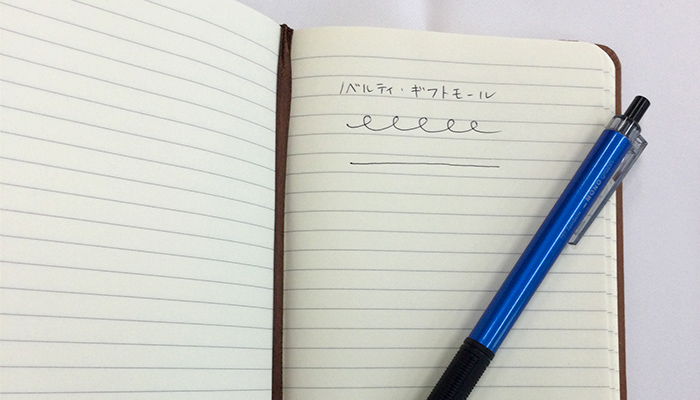 ノベルティ・ギフトモール
MONO